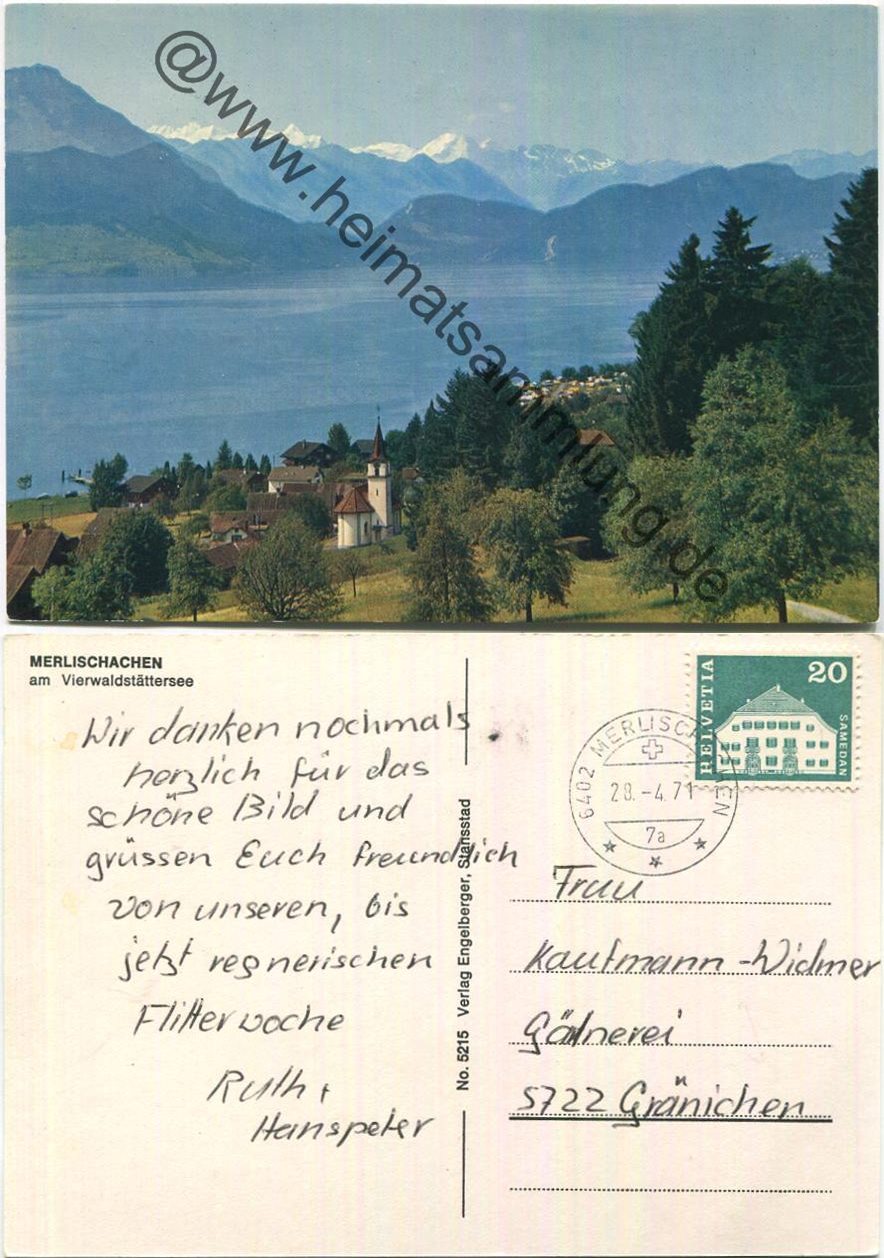 @www.heimatsammlung.de
MERLISCHACHEN
am Vierwaldstättersee
Wir danken nochmals
herzlich für das
schöne Bild und
grüssen Euch freundlich
von unseren, bis
jetzt regnerischen
Flitterwoche
Ruth +
Hanspeter
No. 5215 Verlag Engelberger, Stansstad
HELVETIA
20
SAMEDAN
6402 MERLISCHACHEN
28.-4.71
7a
Frau
Kaufmann-Widmer
Gärtnerei
5722 Gränichen